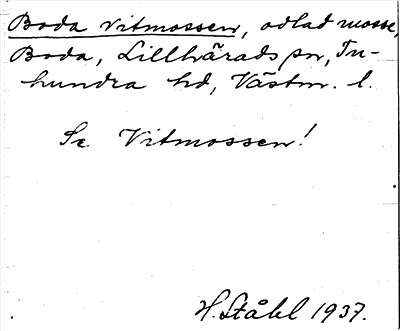 Boda Vitmossen, odlad mosse,
Boda, Lillhärads sn, Tu-
hundra hd, Västm. l.
Se Vitmossen!
H. Ståhl 1937.